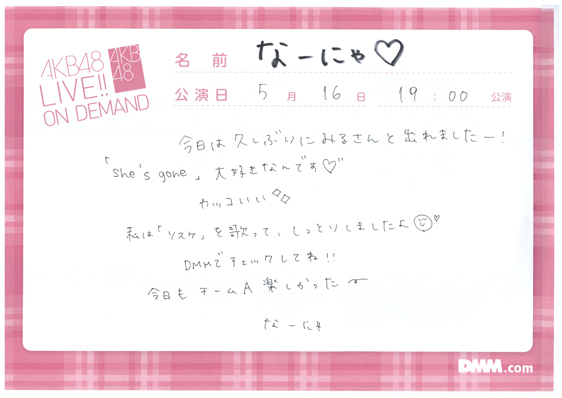 AKB48
LIVE!!
ON DEMAND
AKB
48
名前 なーにゃ♡
公演日 5月 16日 19:00 公演
今日は久しぶりにみるさんと出れましたー!
「she's gone」大好きなんです♡"
カッコいい
私は「リスケ」を歌って、しっとりしましたよ
DMMでチェックしてね!!
今日もチームA楽しかったー
なーにゃ
DMM.com